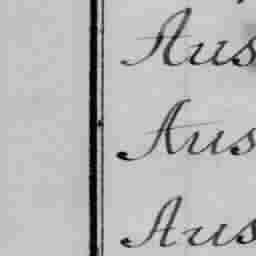 Aus
Aus
Aus